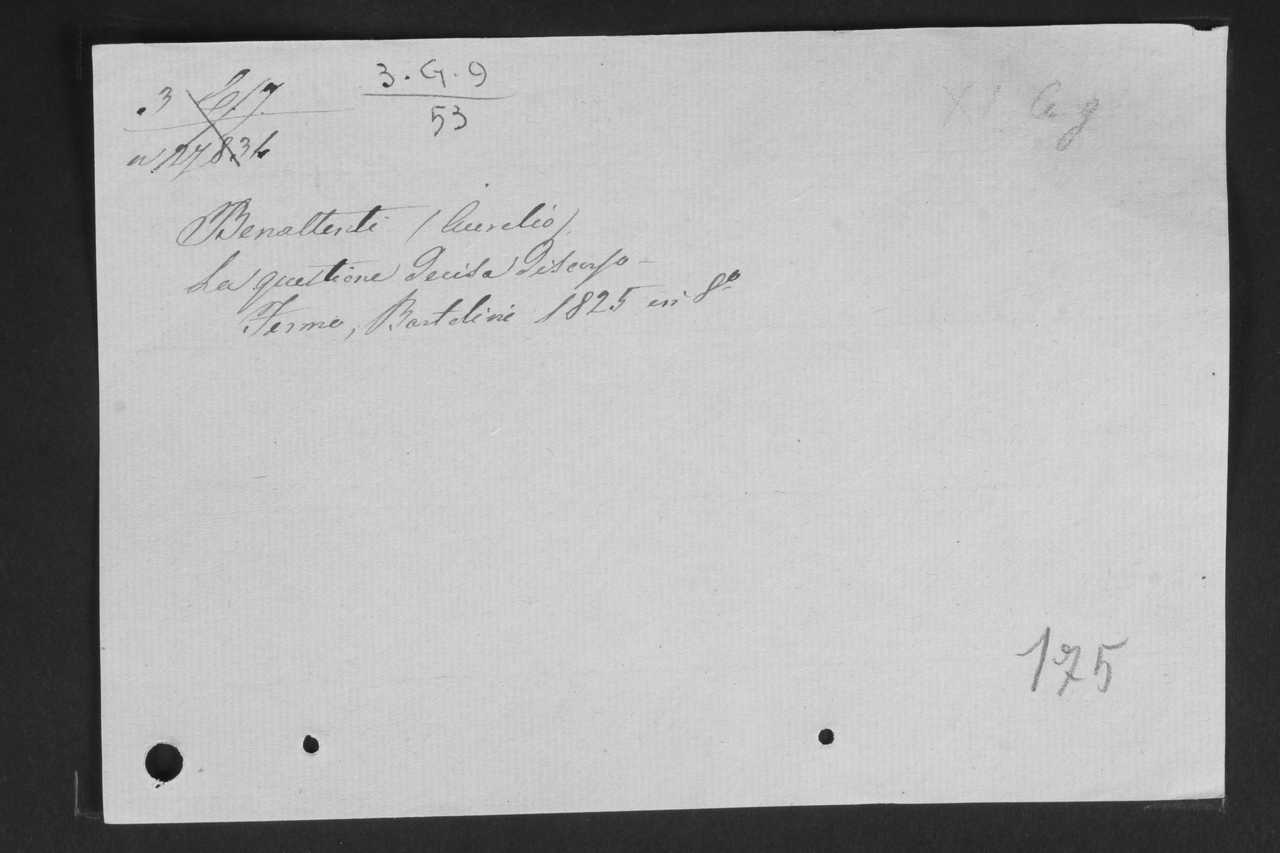 3 · G · 9
53
Benattenti (Aurelio)
La questione decisa Discorso –
Fermo, Bartolini 1825 in 8°
175